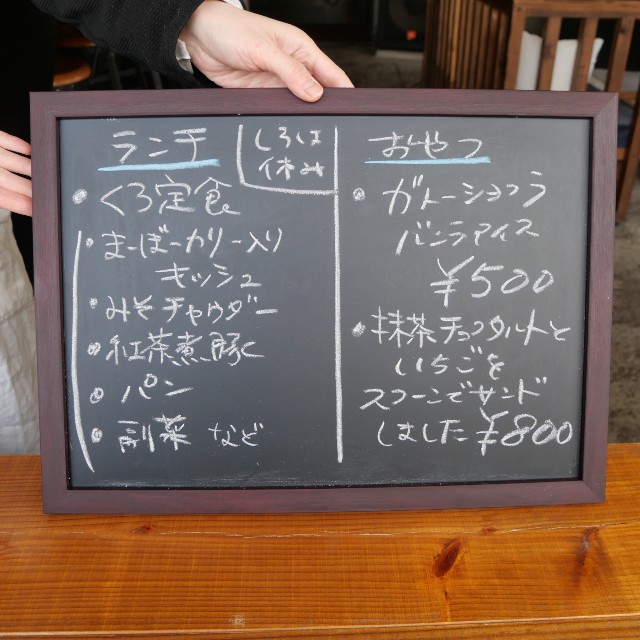 ランチ
しろは
休み
・くろ定食
・まーぼーカリー入り
キッシュ
・みそチャウダー
・紅茶煮豚
・パン
・副菜 など
おやつ
・ガトーショコラ
バニラアイス
¥500
・抹茶チョコタルトと
いちごを
スコーンでサンド
しました ¥800